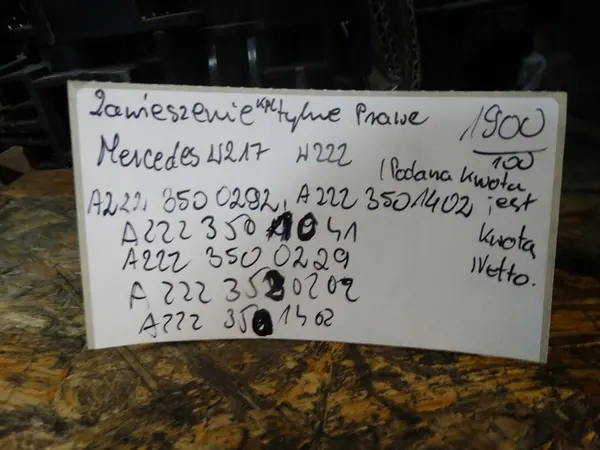 Zawieszenie kpl tylne Prawe
1900
100
Mercedes W217 W222
(Podana kwota jest kwotą Netto.
A222 350 0292, A222 350 1402
A222 350 10 41
A222 350 0229
A 222 352 0202
A222 350 1402